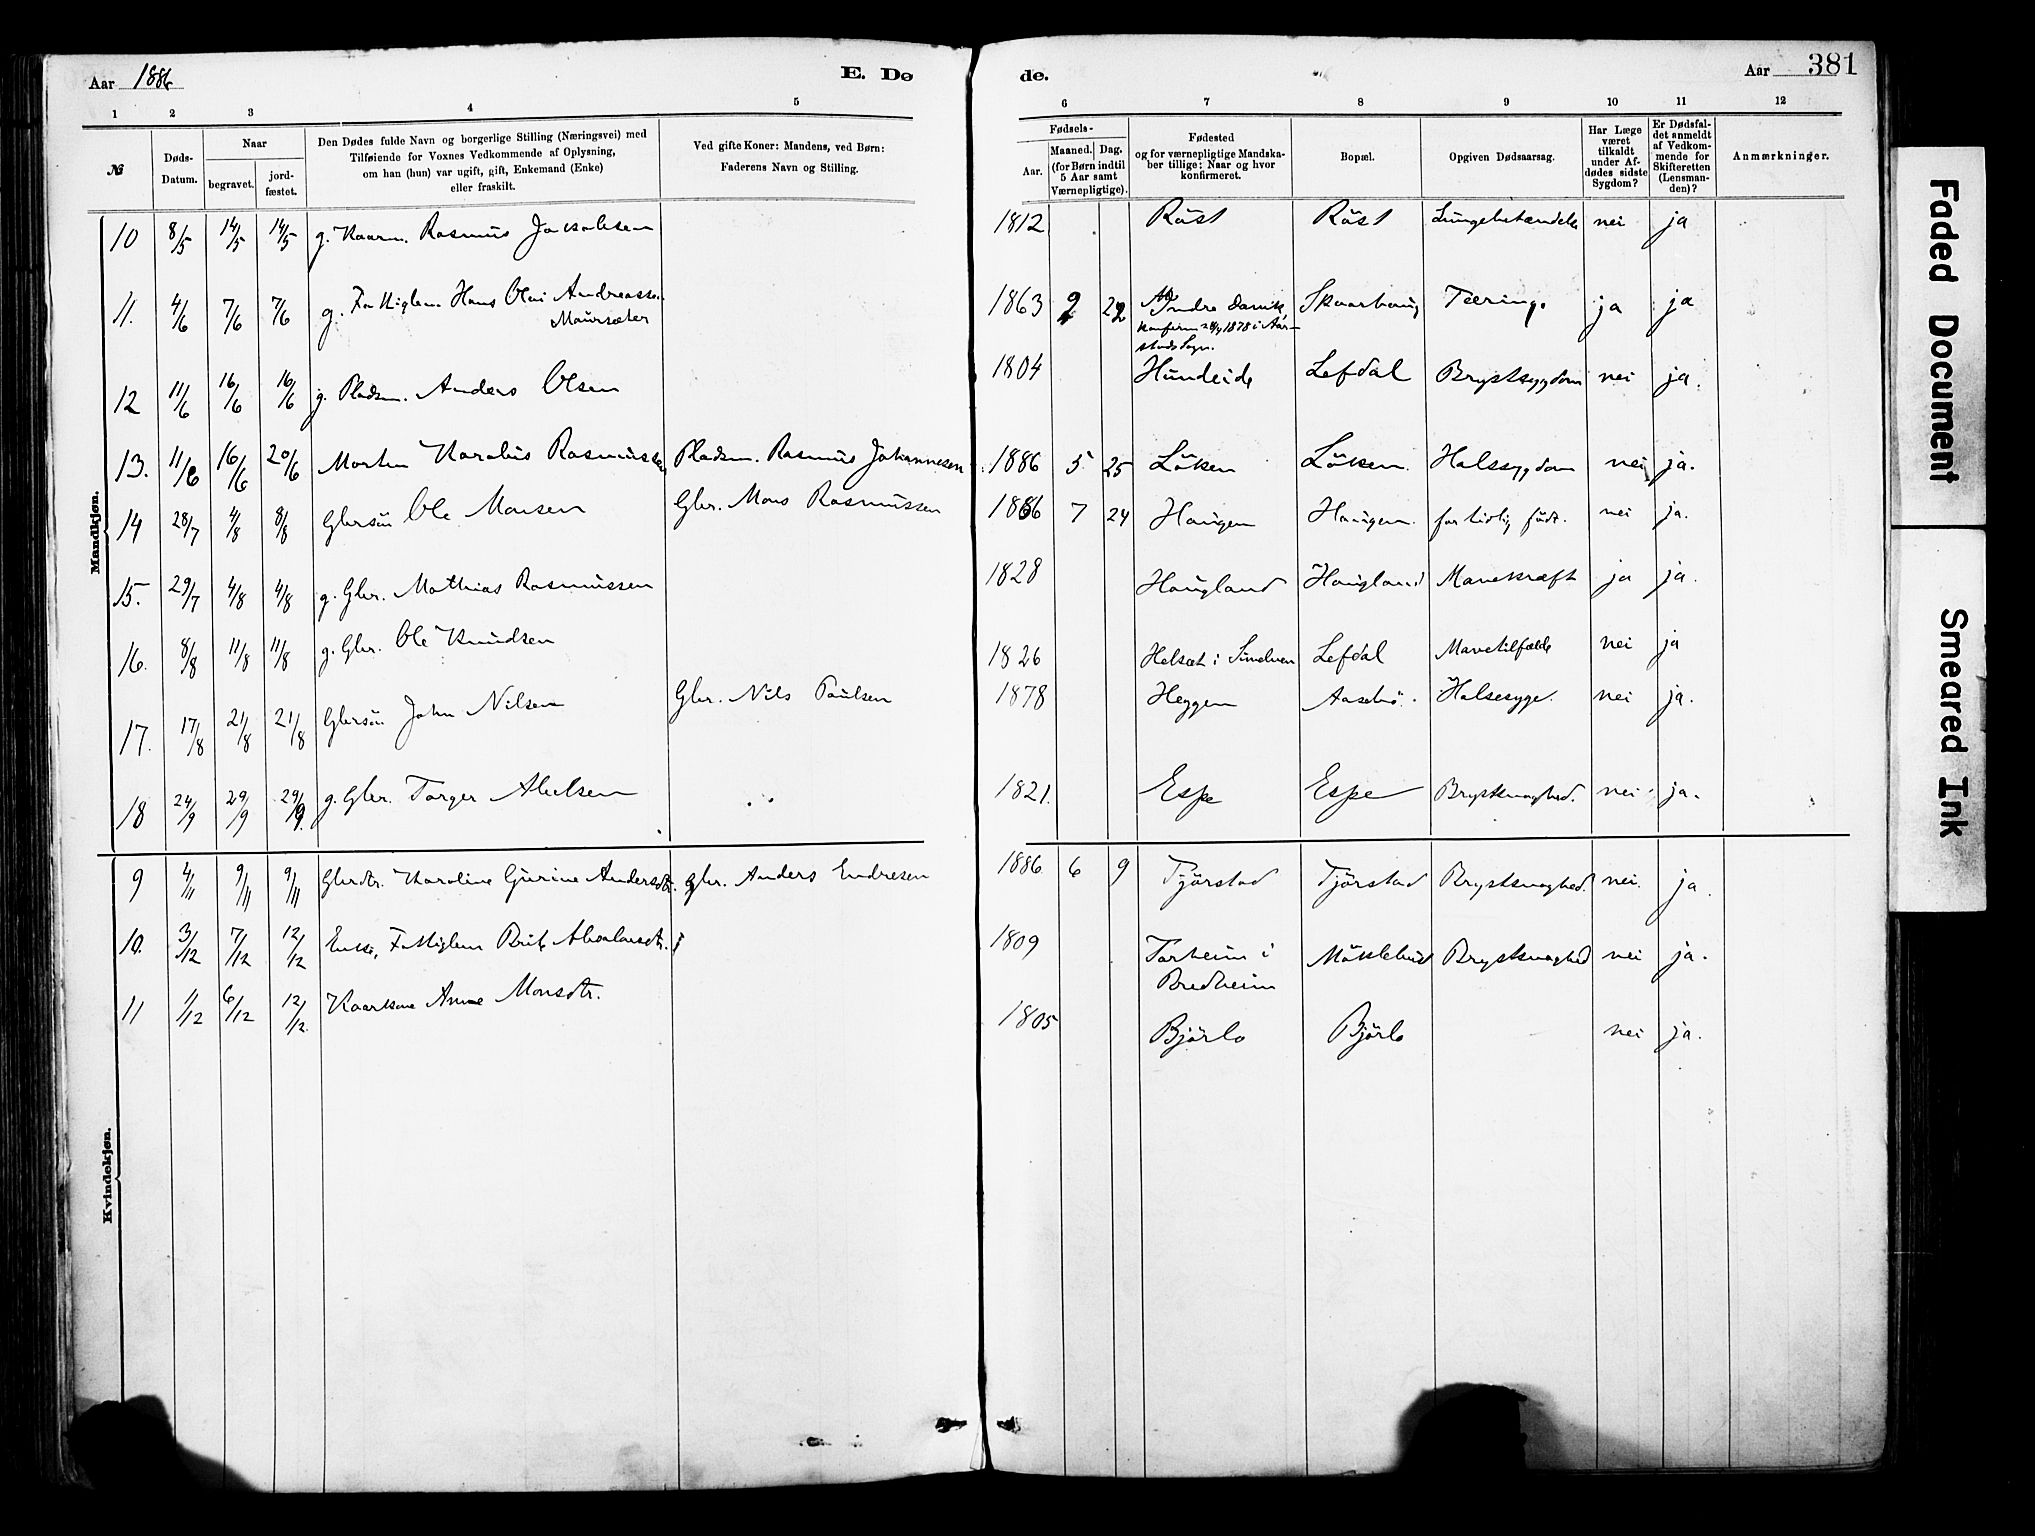 Aar 1886
E. Dø
de.
Aar
381
1 2 3 4 5
6 7 8 9 10 11 12
№
Døds-
Datum.
Naar
begravet.
jord-
fæstet.
Den Dødes fulde Navn og borgerlige Stilling (Næringsvei) med
Tilføiende for Voxnes Vedkommende af Oplysning,
om han (hun) var ugift, gift, Enkemand (Enke)
eller fraskilt.
Ved gifte Koner: Mandens, ved Børn:
Faderens Navn og Stilling.
Fødsels-
Aar.
Maaned. Dag.
(for Børn indtil
5 Aar samt
Værnepligtige).
Fødested
og for værnepligtige Mandska-
ber tillige: Naar og hvor
konfirmeret.
Bopæl.
Opgiven Dødsaarsag.
Har Læge
været
tilkaldt
under Af-
dødes sidste
Sygdom?
Er Dødsfal-
det anmeldt
af Vedkom-
mende for
Skifteretten
(Lensman-
den)?
Anmærkninger.
Mandkjøn.
10 8/5 14/5 14/5 g. Kaarm. Rasmus Jakobsen 1812 Röst Röst Lungebetændelse nei ja
11. 4/6 7/6 7/6 g. Fattiglem Hans Olai Andreassen 1863 2 22 Indre Skaarhaug Tæring. ja ja
Maursæter
konfirm 1878 i
Sogn.
12 11/6 16/6 16/6 g. Pladsm. Anders Olsen 1804 Hundeide Lefdal Brystsygdom nei ja.
13. 11/6 16/6 20/6 Morten Karolus Rasmussen Pladsm. Rasmus Johannesen 1886 5 25 Löken Löken. Halssygdom nei ja.
14 28/7 4/8 8/8 Gbrsön Ole Monsen Gbr. Mons Rasmussen 1886 7 24 Haugen Haugen. for tidlig födt. nei ja.
15. 29/7 4/8 4/8 g. Gbr. Mathias Rasmussen 1828 Haugland Haugland Mavekræft ja ja.
16. 8/8 11/8 11/8 g. Gbr. Ole Knudsen 1826 Helsæt i Lefdal Mavetilfælde nei ja
17. 17/8 21/8 21/8 Gbrsön John Nilsen Gbr. Nils Paulsen 1878 Heggen Aasebö. Halsesyge. nei ja.
18 24/9 29/9 29/9. g. Gbr. Torger Abelsen 1821. Espe Espe Brystsvaghed. nei ja.
Kvindekjøn.
9 4/11 9/11 9/11 Gbrdtr. Karoline Gurine Andersdtr. gbr. Anders Endresen 1886 6 9 Tjörstad Tjörstad Brystsvaghed. nei. ja.
10. 3/12 7/12 12/12 Enke, Fattiglem Brit 1809 Torheim i Mökklebust Brystsvaghed nei ja.
Bredheim
11 1/12 6/12 12/12. Kaarkone Anne Monsdtr. 1805 Bjørlo Bjørlo nei ja.
Faded Document
Smeared Ink